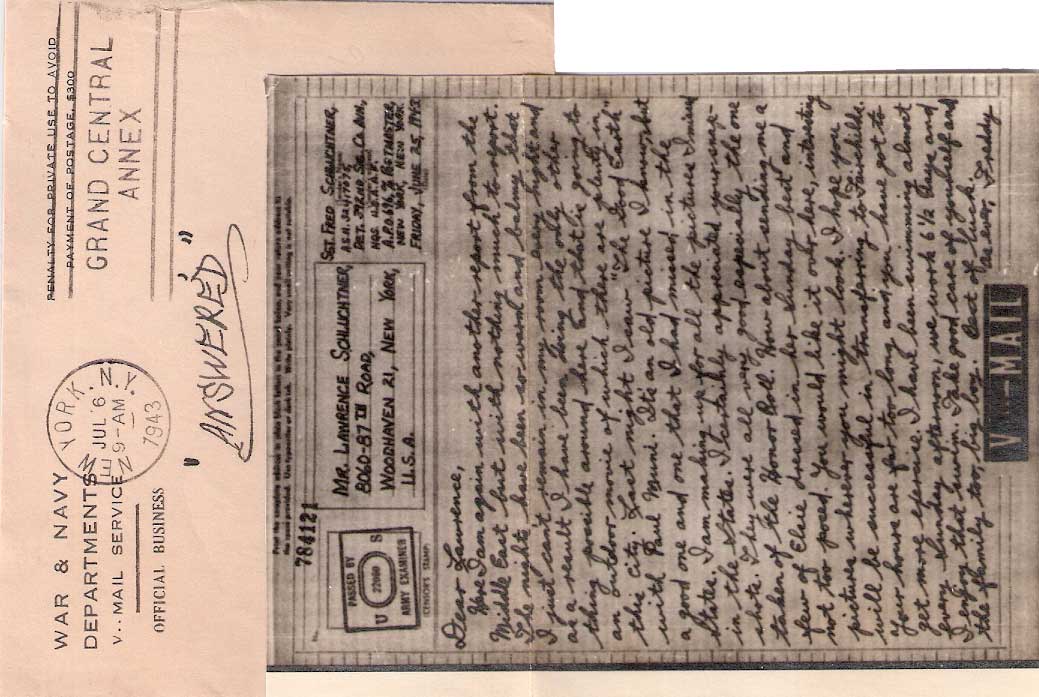 WAR & NAVY
DEPARTMENTS
V--MAIL SERVICE
OFFICIAL BUSINESS
NEW YORK, N.Y.
JUL 6
9-AM
1943
PENALTY FOR PRIVATE USE TO AVOID
PAYMENT OF POSTAGE, $300
GRAND CENTRAL
ANNEX
"ANSWERED"
Print the complete address in plain block letters in the panel below, and your return address in
the space provided. Use typewriter or dark ink. Write plainly. Very small writing is not suitable.
784121
PASSED BY
U 22000 S
ARMY EXAMINER
(CENSOR'S STAMP)
MR. LAWRENCE SCHLICHTNER,
8060-87TH ROAD,
WOODHAVEN 21, NEW YORK,
U.S.A.
SGT. FRED SCHLICHTNER,
A.S.N.
DET.
HQS.
A.P.O. 616, % POSTMASTER,
NEW YORK, NEW YORK
FRIDAY, JUNE 25, 1943
Dear Lawrence,
Here I am again with another report from the
Middle East but with nothing much to report.
The nights have been so warm and balmy that
I just can't remain in my room every night and
as a result I have been doing the only other
thing possible around here and that is going to
an outdoor movie of which there are plenty in
this city. Last night I saw "The Good Earth"
with Paul Muni. It's an old picture I know, but
a good one and one that I had missed in the
States. I am making up for all the pictures I missed
in the States. I certainly appreciated your snap-
shots. They were all very good especially the one
taken of the Honor Roll. How about sending me a
few of Elsie dressed in her Sunday best and
not too posed. You would like it over here, interesting
pictures wherever you might look. I hope you
will be successful in transferring to Fairchilds.
Your hours are far too long and you have got to
get more exercise. I have been swimming almost
every Sunday afternoon, we work 6 1/2 days and
I enjoy that swim. Take good care of yourself and
the family too, big boy. Best of luck.
As ever, Freddy
V--MAIL